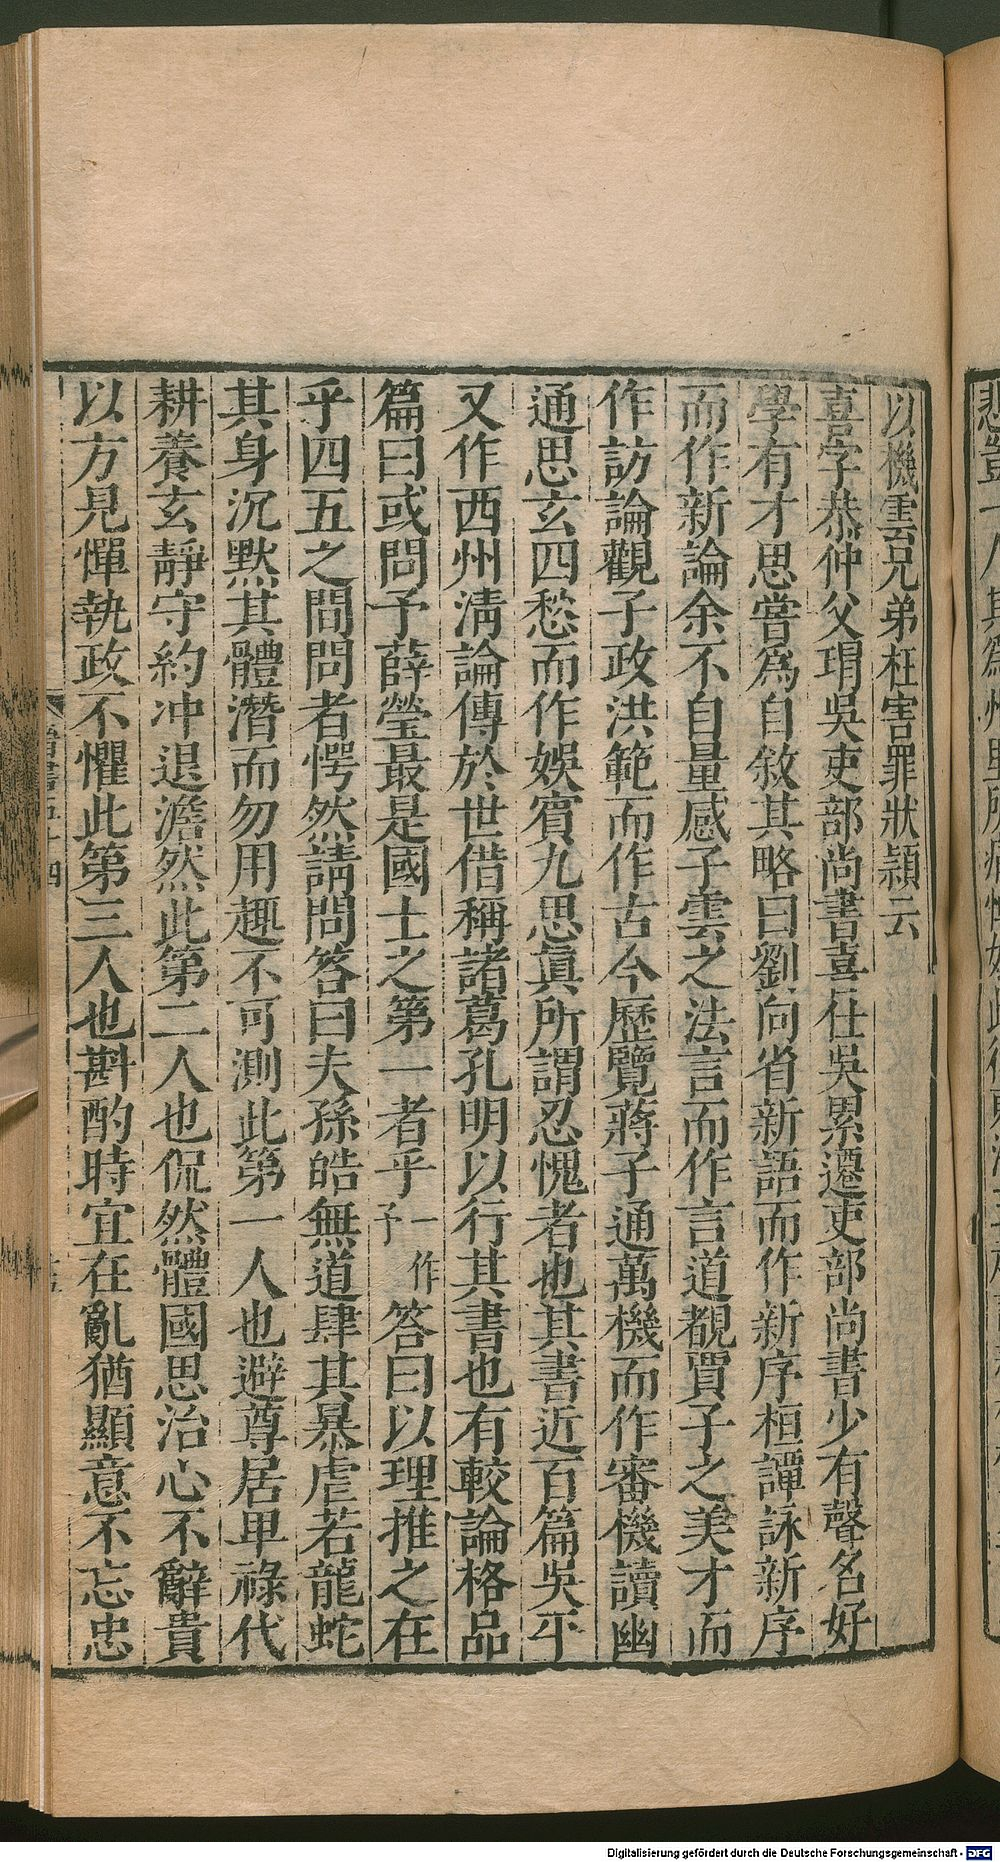 以機雲兄弟枉害罪狀頴云
喜字恭仲父瑁吳吏部尚書喜仕吳累遷吏部尚書少有聲名好
學有才思嘗爲自敘其略曰劉向省新語而作新序桓譚詠新序
而作新論余不自量感子雲之法言而作言道覩賈子之美才而
作訪論觀子政洪範而作古今歷覽蔣子通萬機而作審機讀幽
通思玄四愁而作娛賓九思眞所謂忍愧者也其書近百篇吳平
又作西州淸論傳於世借稱諸葛孔明以行其書也有較論格品
篇曰或問予薛瑩最是國士之第一者乎一作予答曰以理推之在
乎四五之間問者愕然請問答曰夫孫皓無道肆其暴虐若龍蛇
其身沉默其體潛而勿用趣不可測此第一人也避尊居卑祿代
耕養玄靜守約冲退澹然此第二人也侃然體國思治心不辭貴
以方見憚執政不懼此第三人也斟酌時宜在亂猶顯意不忘忠
Digitalisierung gefördert durch die Deutsche Forschungsgemeinschaft - DFG